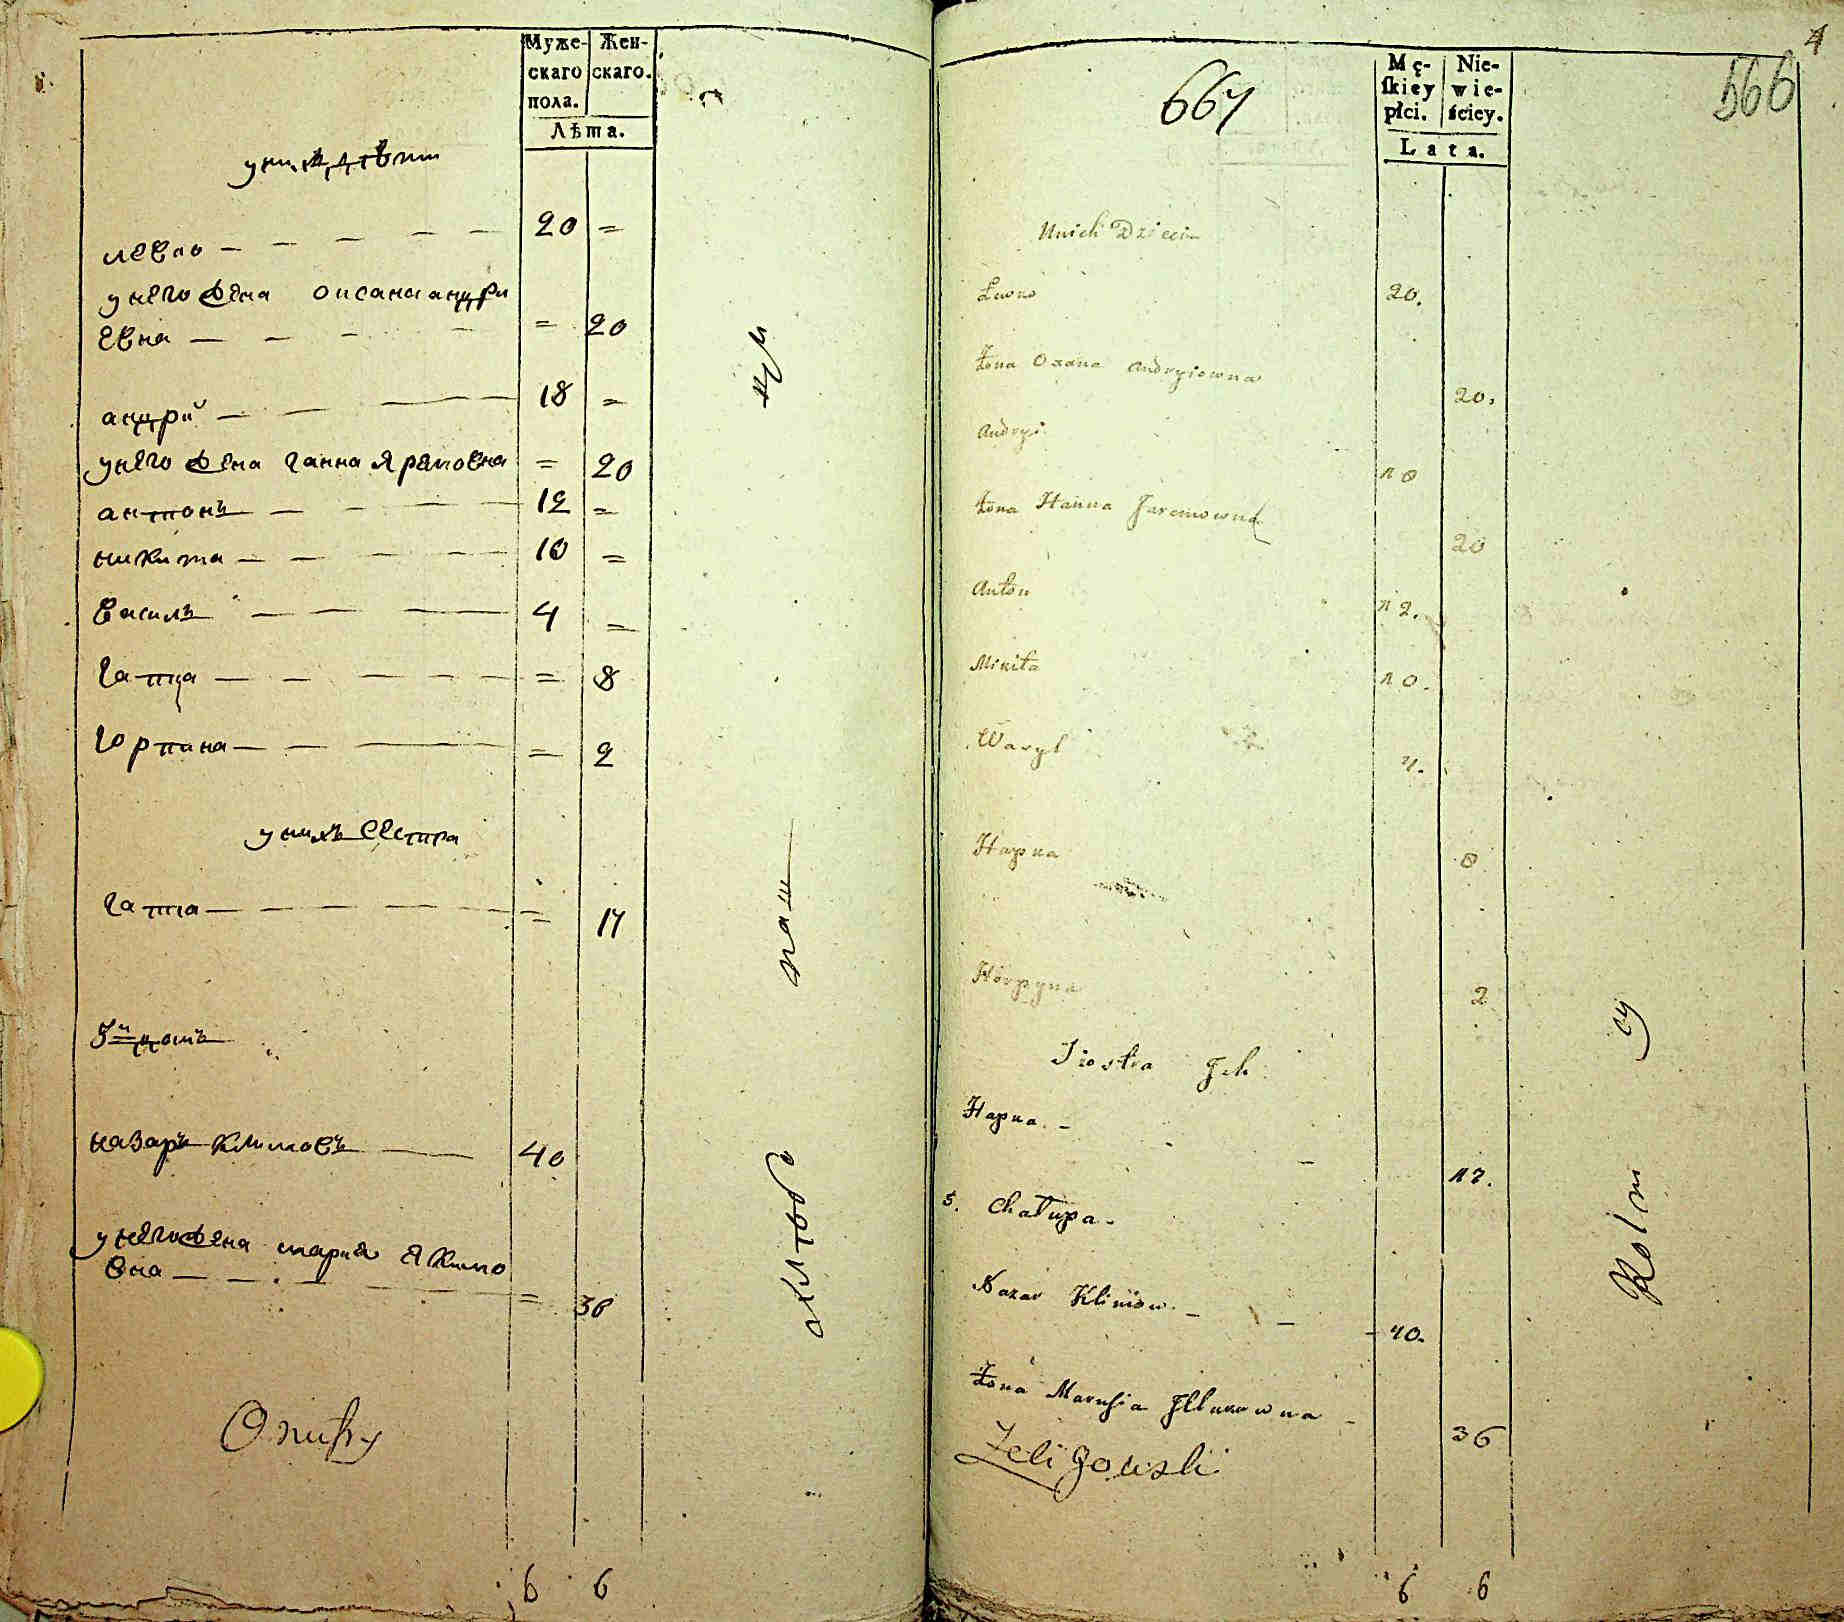 Муже-
скаго
пола.
Жен-
скаго.
Лѣта.
у нихъ дѣти
левко — — — — 20 =
у него жена оксана андри
евна — — — = 20
андрй — — — 18 =
у него жена ганна Яремовна = 20
антонъ — — — 12 =
никита — — — 10 =
василь — — — 4 =
гапка — — — = 8
горпина — — — = 2
у нихъ сестра
гапка — — — = 17
5й домъ
назаръ климовъ — — 40
у него жена мария Якимо
вна — — — = 36
6 6
667
566
4
Mę-
ſkiey
płci.
Nie-
wie-
ściey.
Lata.
Unich Dzieci
Lewko 20.
Żona Oxana Andryiowna 20.
Andryi 18
Żona Hanna Jaremowna 20
Anton 12.
Mikita 10.
Wasyl 4.
Hapka 8
Horpyna 2
Siostra Ich
Hapka. — 17.
5. Chałupa.
Nazar Klimow. — — 40.
Żona Marusia 36
Zeligowski
6 6